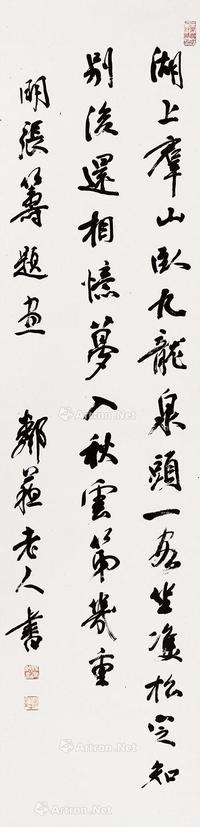 湖上羣山臥九龍泉頭一客坐雙松定知
別後還相憶夢入秋雲第幾重
明張籌題畫 鄰蘇老人書
Artron.Net